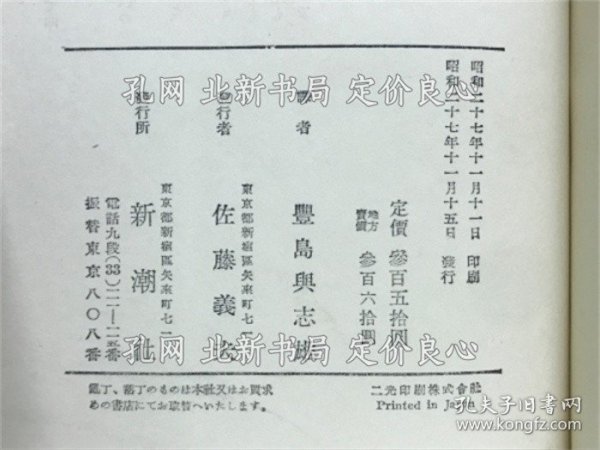 昭和二十七年十一月十一日 印刷
昭和二十七年十一月十五日 發行
定價 參百五拾圓
地方賣價 參百六拾圓
者 豐島與志雄
東京都新宿區矢來町七一
行者 佐藤義
東京都新宿區矢來町七一
發行所 新潮社
電話九段(33)
振替東京八〇八番
亂丁、落丁のものは本社又はお買求
めの書店にてお取替へいたします。
二光印刷株式會社
Printed in Japan
孔网 北新书局 定价良心
孔网 北新书局 定价良心
孔网 北新书局 定价良心
孔夫子旧书网
www.kongfz.com